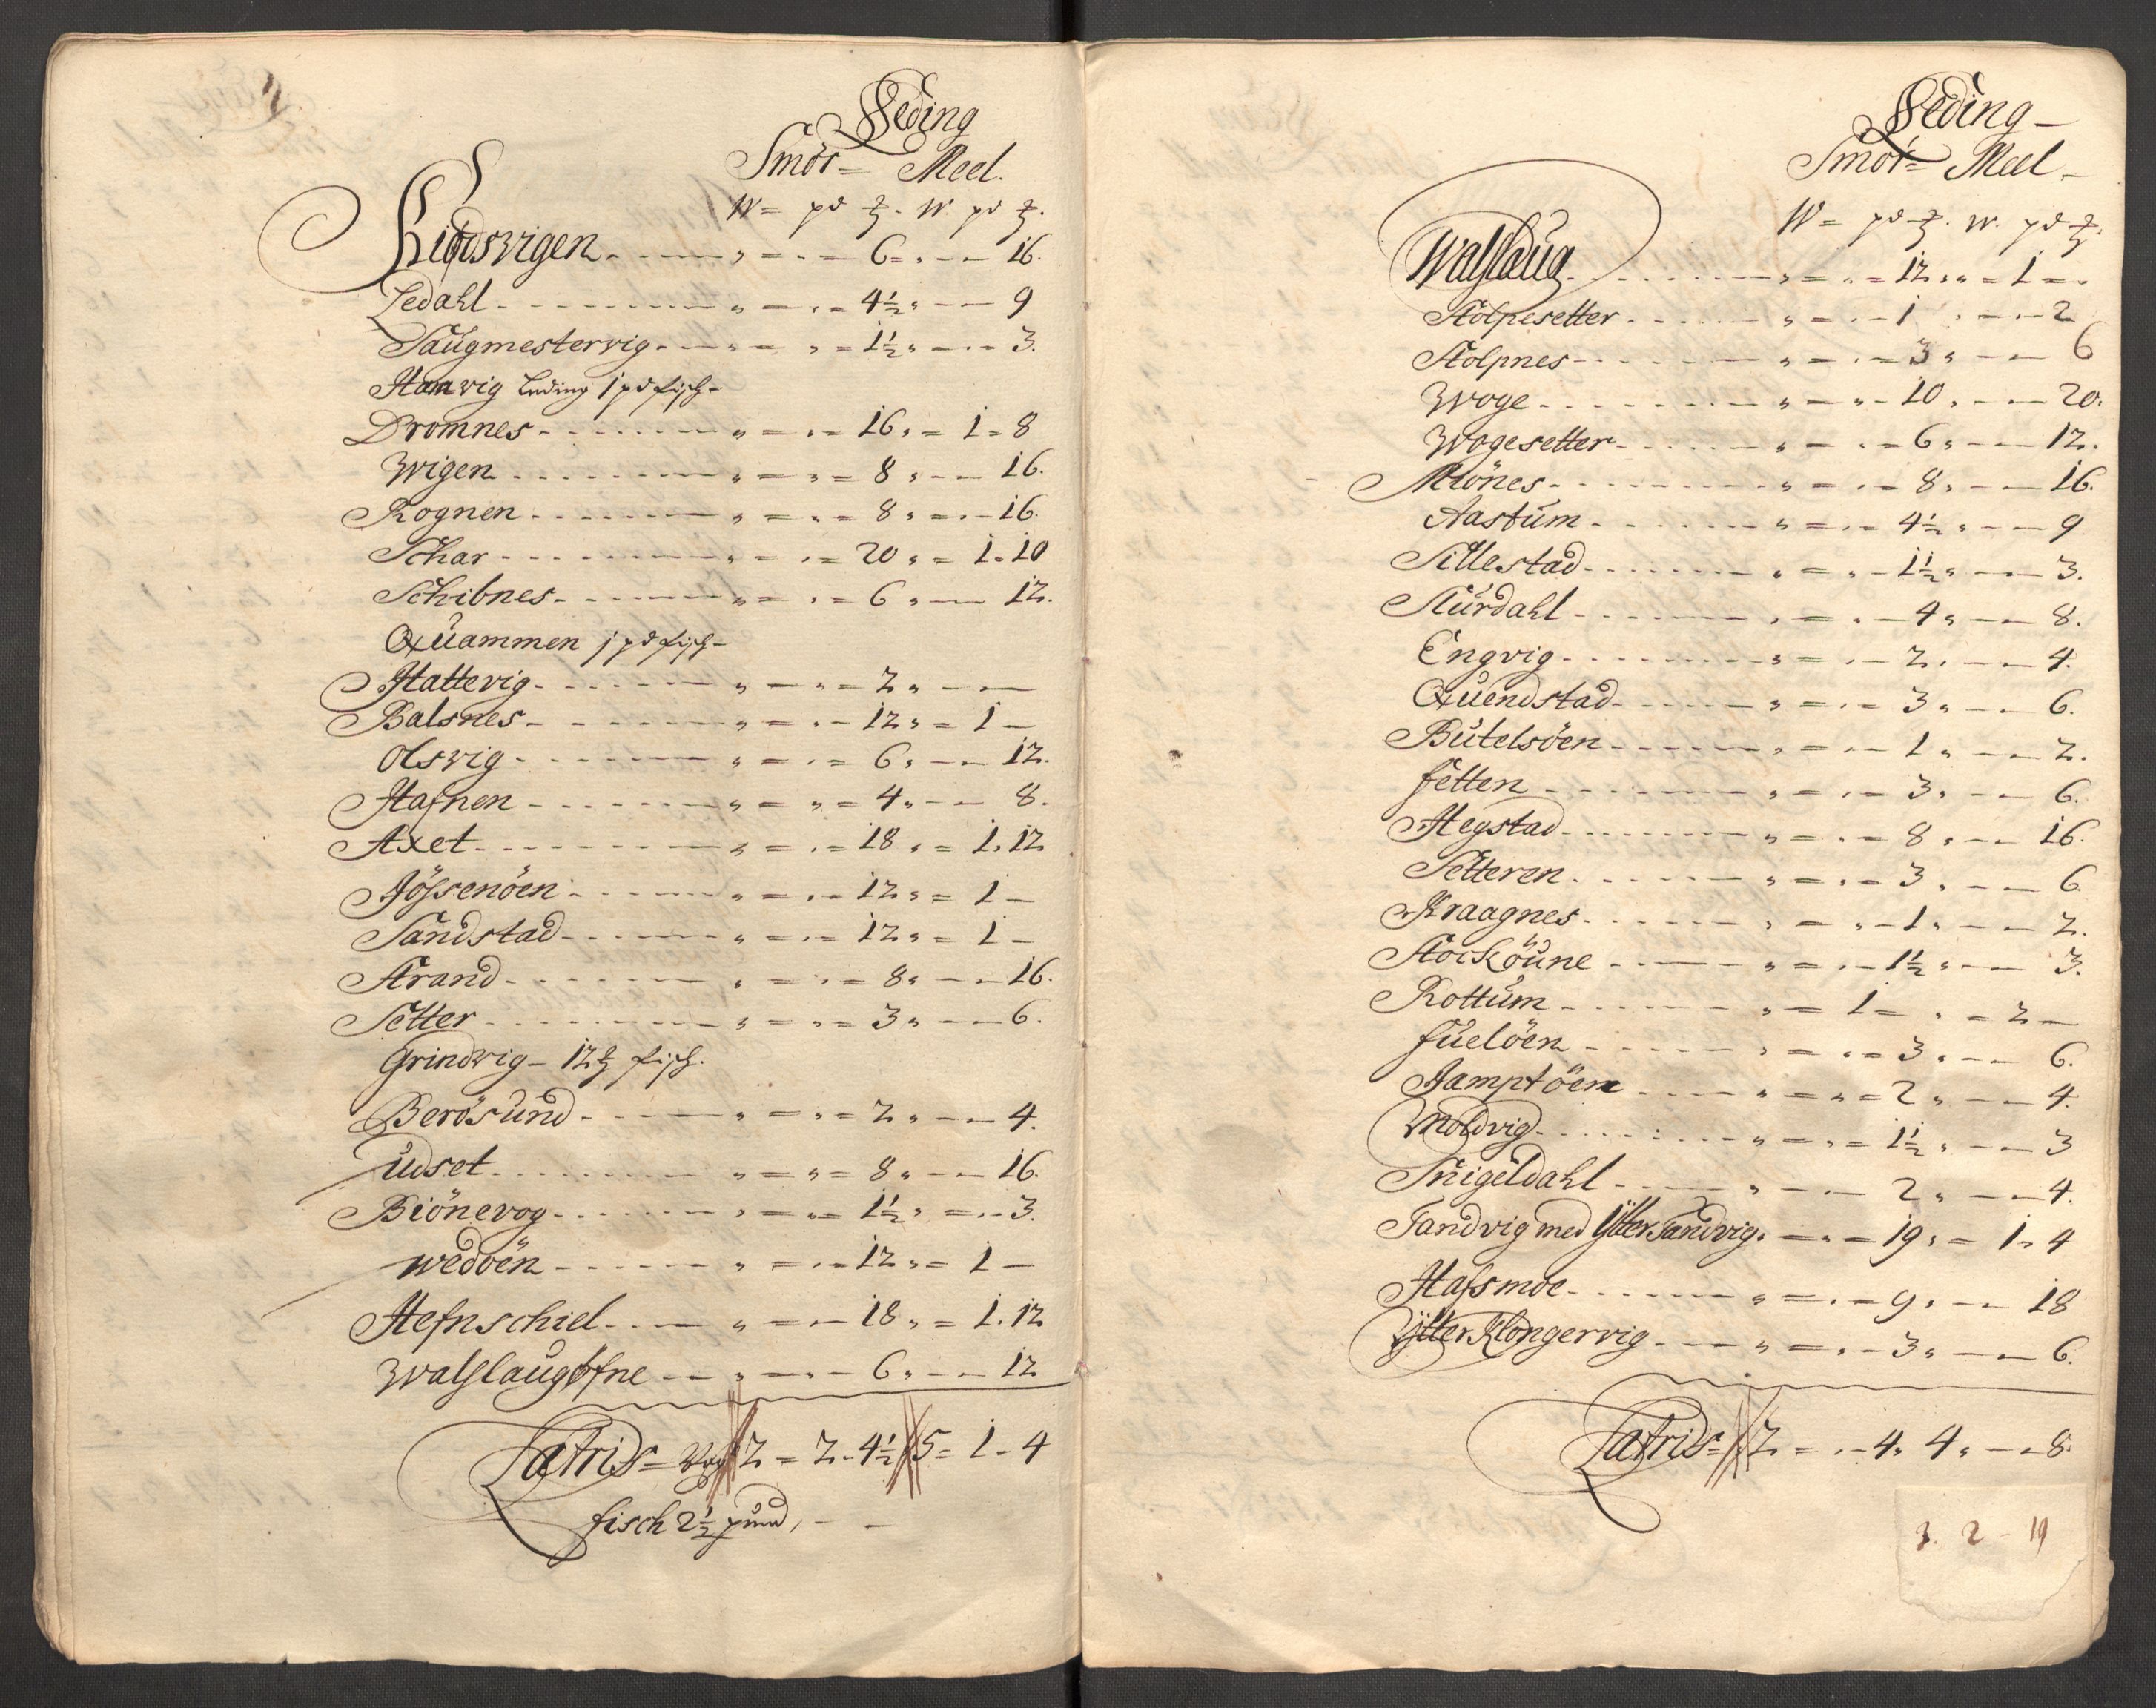 Leding
Smör = Meel.
W = pd ℔. W. pd ℔.
Kiodsvigen - - - " = " = 6 = " - - 16.
Ledahl - - - " = " = 4½ " - - 9
Saugmestervig - - - " = " = 1½ " - - 3.
Hamvig Leding 1 pd fisch -
Dromnes - - - " = " = 16 " = 1 = 8
Wigen - - - " = " = 8 " - - 16.
Rognen - - - " = " = 8 " = " - 16.
Schar - - - " = " = 20 " = 1 - 10
Schibnes - - - " = " = 6 " - - 12.
Quammen 1 pd fisch -
Hattevig - - - " = " = 2 " - -
Balsnes - - - " = " - 12 " = 1 -
Olsvig - - - " = " = 6 " - - 12.
Hafnen - - - " = " = 4 " - - 8.
Axet - - - " = " = 18 " = 1. 12
Jössenöen - - - " = " - 12 " = 1 -
Sandstad - - - " = " = 12 " = 1 -
Strand - - - " = " = 8 " - - 16.
Setter - - - " = " = 3 " - - 6.
Grindvig - 12 ℔ fisch.
Berösund - - - " = " = 2 " - - 4.
Udset - - - " = " = 8 " - - 16.
Biönevog - - - " = " = 1½ " = " - 3.
Wedöen - - - " = " - 12 " = 1 -
Hefnschiel - - - " = " - 18 " = 1. 12
Walslaugöfne - - " - " - 6 " - - 12
Latris = Vog 2 = 2 - 4½ 5 = 1 - 4
fisch 2½ pund, - -
Leding -
Smör = Meel -
W = pd ℔. W. pd ℔.
Walslaug - - - " = " = 12 " " = 1 = "
Stolpesetter - - - " = " - 1 " - - 2
Stolpnes - - - " = " = 3 " - - 6
Woge - - - " = " - 10 " - - 20.
Wogesetter - - - " = " = 6 " - - 12.
Miönes - - - " = " - 8 " - - 16.
Aastum - - - " = " - 4½ " - - 9
Sillestad - - - " = " - 1½ " - - 3.
Sturdahl - - - " = " - 4 " - - 8.
Engvig - - - " = " - 2 " - - 4.
Quendstad - - - " = " = 3 " - - 6.
Butelsöen - - - " = " - 1 " - - 2.
Fetten - - - " = " = 3 " - - 6.
Hegstad - - - " = " = 8 " - - 16.
Setteren - - - " = " = 3 " - - 6
Kraagnes - - - " = " - 1 " - - 2.
Stocköune - - - " = " - 1½ " - - 3.
Rottum - - - " = 1 = " = 2 -
Fuelöen - - - " = " = 3 " - - 6.
Jamptöen - - - " = " = 2 " - - 4.
Moldvig - - - " = " = 1½ " - - 3
Snigeldahl - - - " - " - 2 " - - 4.
Tandvig med Ytter Tandvig " = " = 19 " = 1 " 4
Hafsmoe - - - " = " = 9 " - - 18
Ytter Klongervig - - - " = " - 3 " - - 6.
Latris = 2 = " - 4. 4 " - " 8.
3. 2 - 19